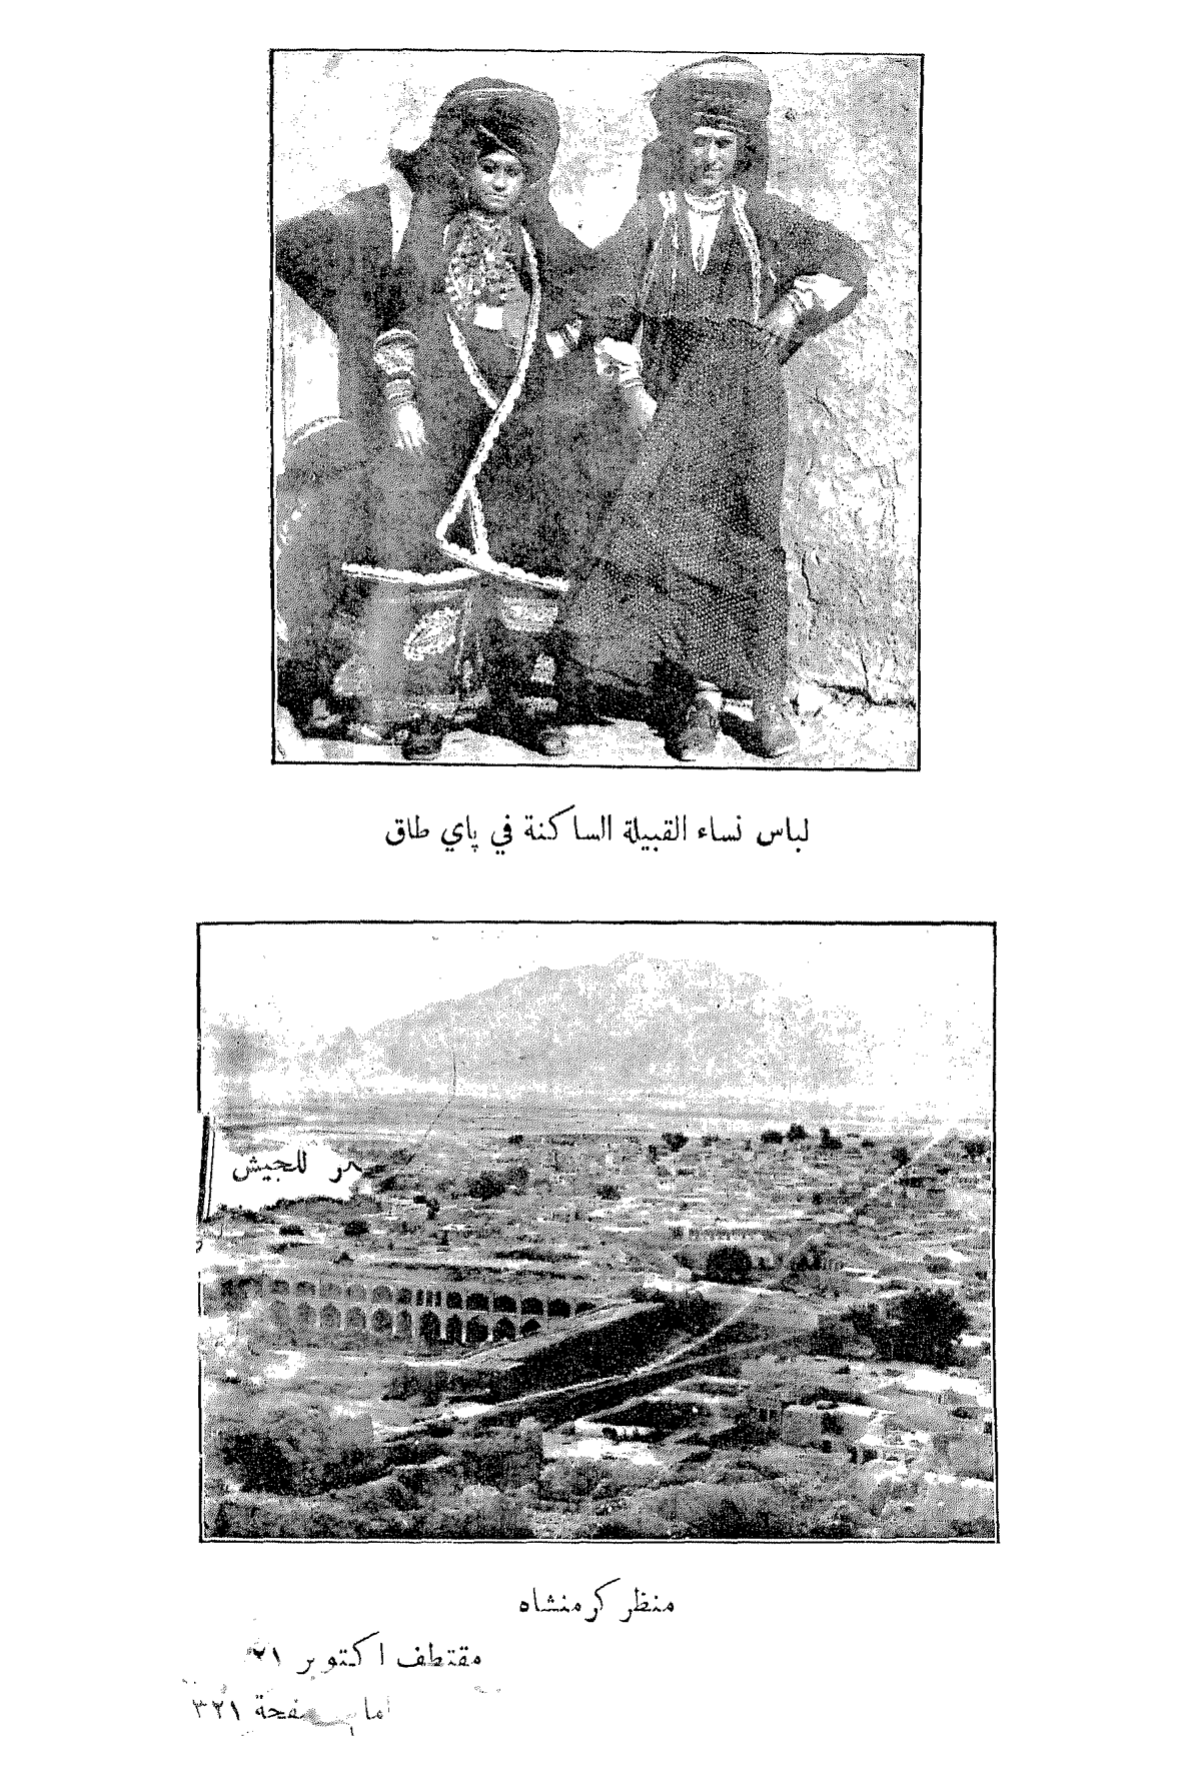 لباس نساء القبيلة الساكنة في پاي طاق
ر للجيش
منظر كرمنشاه
مقتطف اكتوبر ٢١
امام صفحة ٣٢١